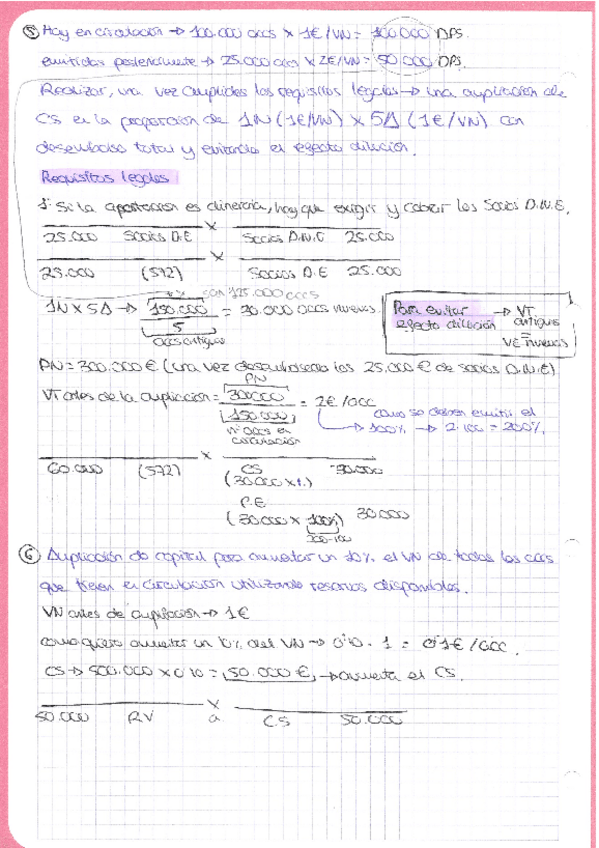 ⑤ Hay en circulación → 100.000 accs x 1€/VN = 100.000 DPS.
emitidas posteriormente → 25.000 accs x 2€/VN = 50.000 DPS.
Realizar, una vez cumplidos los requisitos legales → una ampliación de
CS en la proporción de 1N (1€/VN) x 5A (1€/VN) con
desembolso total y evitando el efecto dilución.
Requisitos legales
1. Si la aportación es dineraria, hay que exigir y cobrar los Socios D.N.E.
x
25.000 Socios D.E Socios D.N.E 25.000
x
25.000 (572) Socios D.E 25.000
son 125.000 accs
1N x 5A → 150.000 = 30.000 accs nuevas.
5
accs antiguas
Para evitar efecto dilución → VT antiguas = VE nuevas
PN = 300.000 € (una vez desembolsado los 25.000 € de socios D.N.E)
PN
VT antes de la ampliación = 300.000 = 2€/acc
150.000
nº accs en circulación
como se deben emitir el
→ 100% → 2·100 = 200%.
x
60.000 (572) CS 30.000
(30.000 x 1)
P.E
(30.000 x 100%) 30.000
200-100
⑥ Ampliación de capital para aumentar un 10% el VN de todas las accs
que tienen en circulación utilizando reservas disponibles.
VN antes de ampliación → 1€
como quiero aumentar un 10% del VN → 0'10 · 1 = 0'1€/acc.
CS → 500.000 x 0'10 = 50.000 €, → aumenta el CS.
x
50.000 RV a C.S 50.000